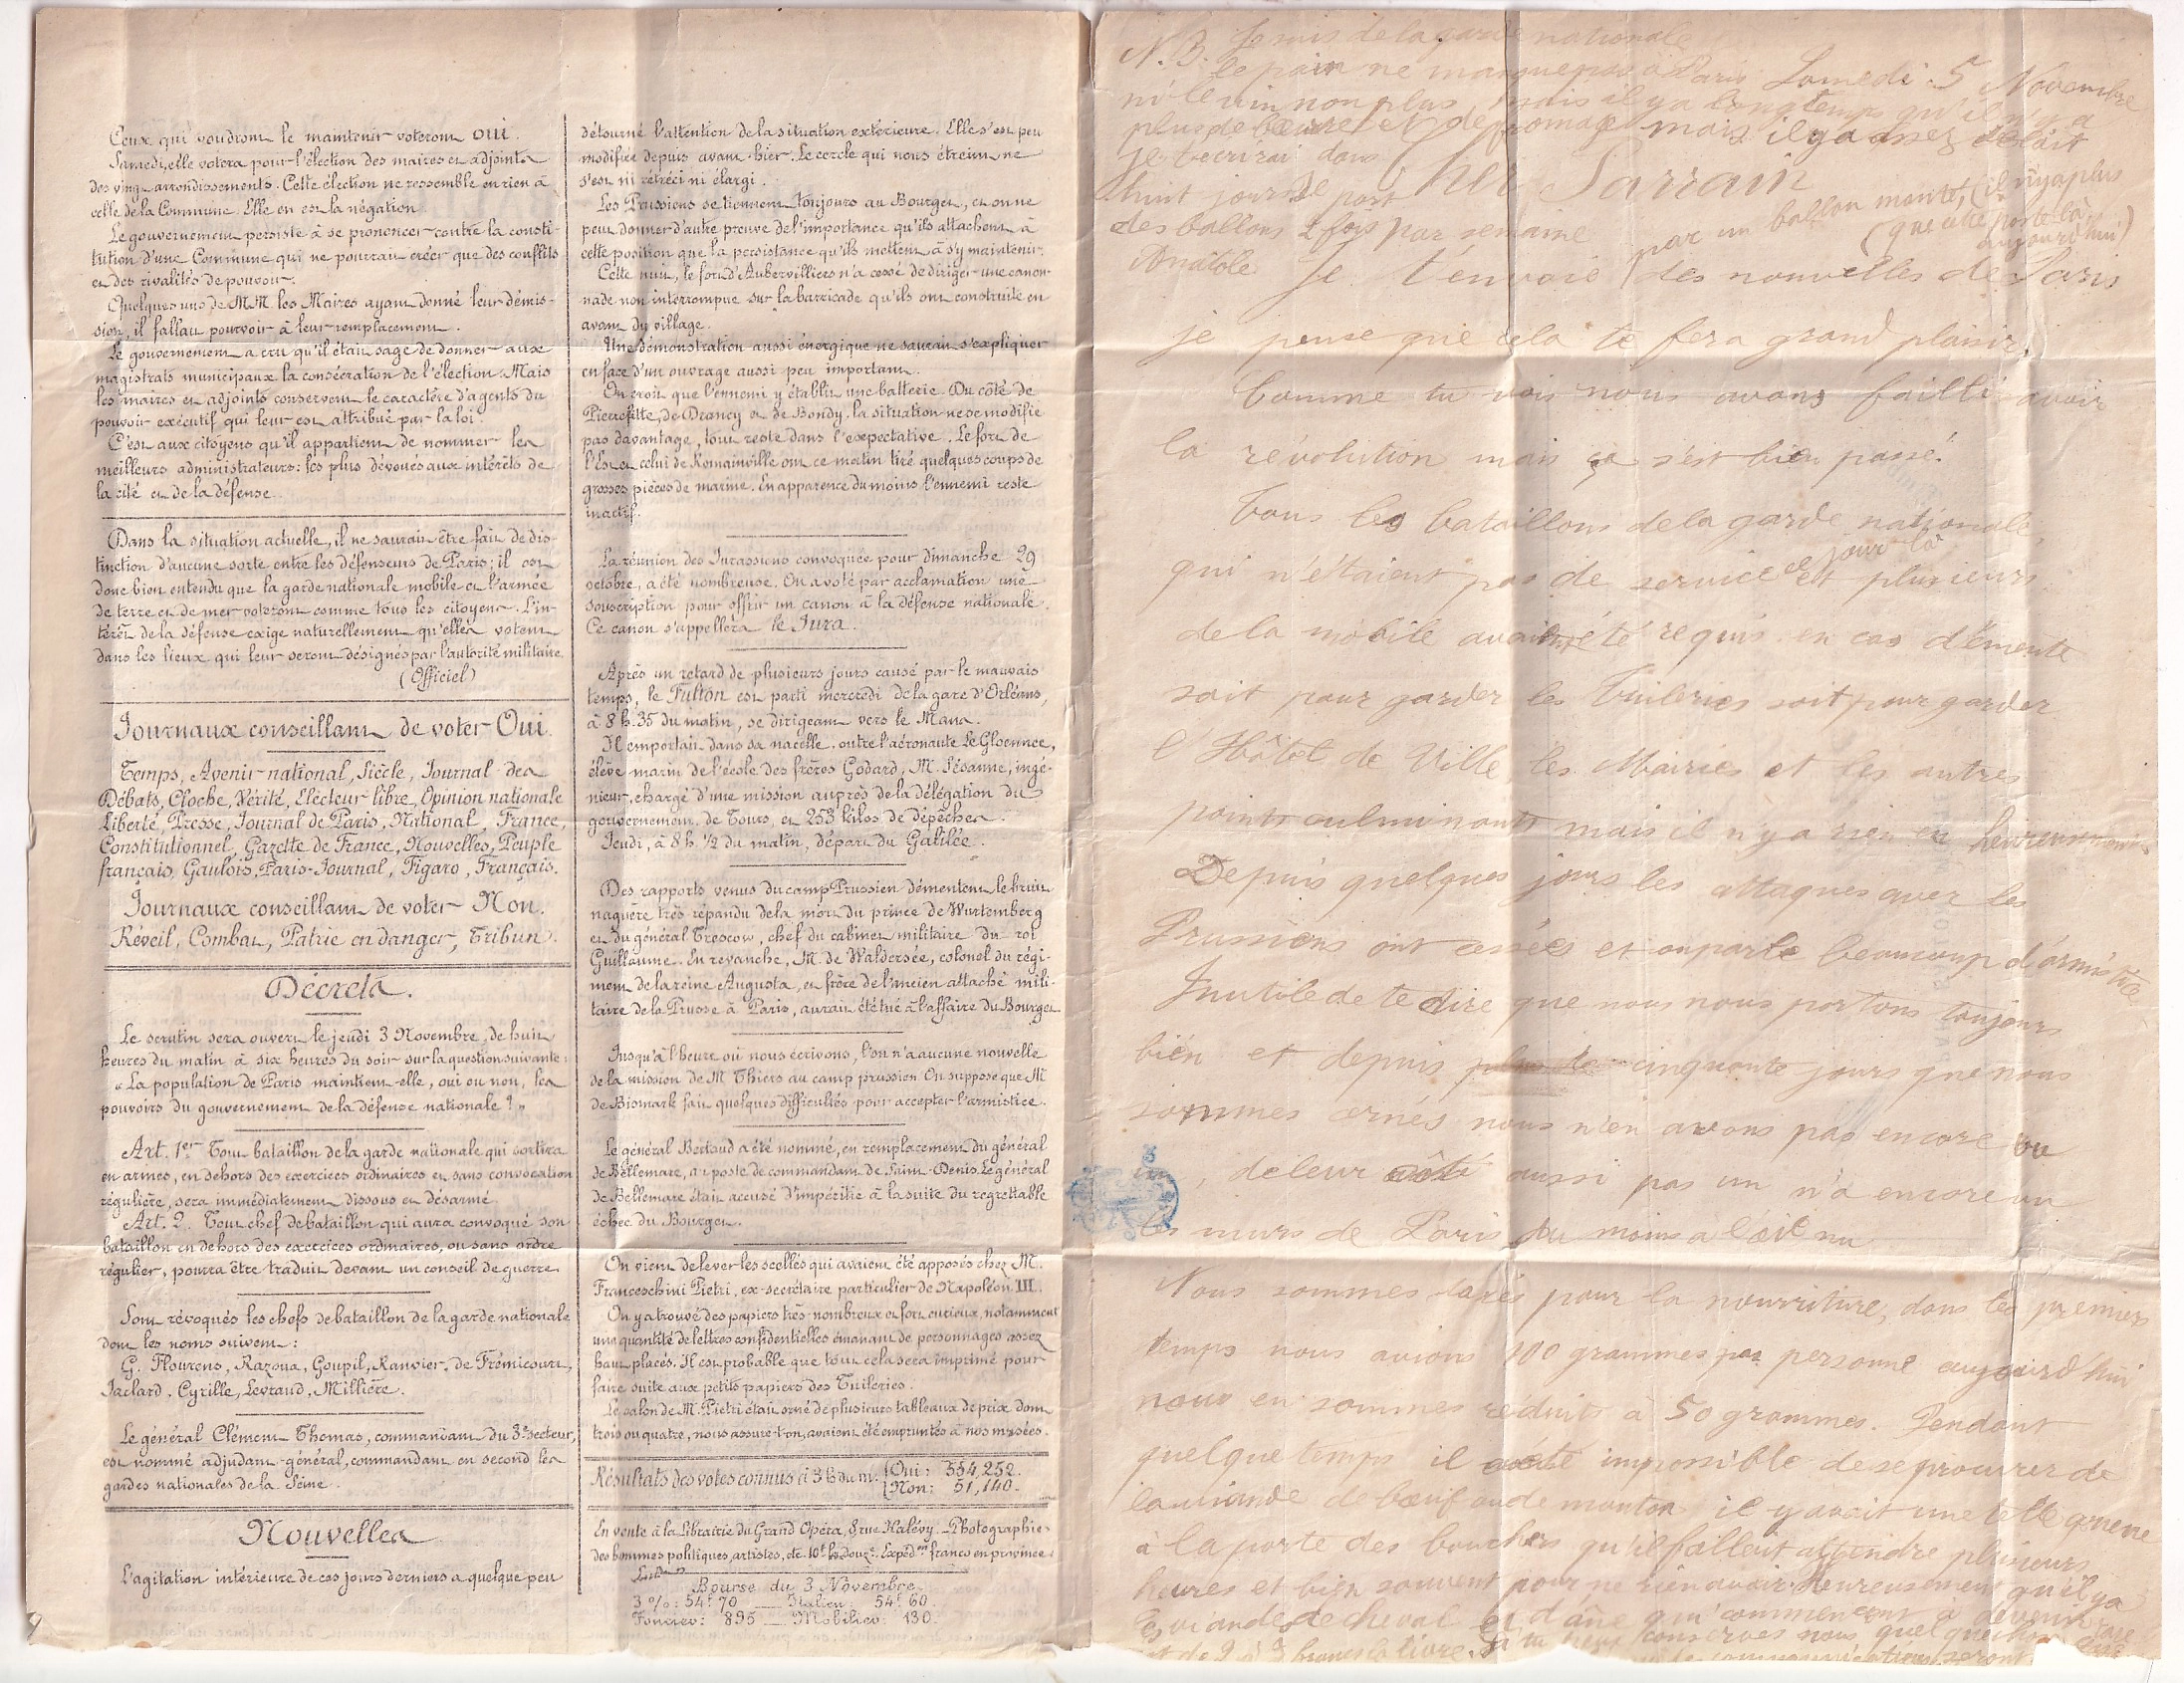 Ceux qui voudront le maintenir voteront oui.
Samedi, elle votera pour l'élection des maires et adjoints
des vingt arrondissements. Cette élection ne ressemble en rien à
celle de la Commune. Elle en est la négation.
Le gouvernement persiste à se prononcer contre la consti-
tution d'une Commune qui ne pourrait créer que des conflits
et des rivalités de pouvoir.
Quelques uns de M.M. les Maires ayant donné leur démis-
sion, il fallait pourvoir à leur remplacement.
Le gouvernement a cru qu'il était sage de donner aux
magistrats municipaux la consécration de l'élection. Mais
les maires et adjoints conservent le caractère d'agents du
pouvoir exécutif qui leur est attribué par la loi.
C'est aux citoyens qu'il appartient de nommer les
meilleurs administrateurs: les plus dévoués aux intérêts de
la cité et de la défense.
Dans la situation actuelle, il ne saurait être fait de dis-
tinction d'aucune sorte entre les défenseurs de Paris; il est
donc bien entendu que la garde nationale mobile et l'armée
de terre et de mer voteront comme tous les citoyens. L'in-
térêt de la défense exige naturellement qu'elles votent
dans les lieux qui leur seront désignés par l'autorité militaire.
(Officiel)
Journaux conseillant de voter Oui.
Temps, Avenir national, Siècle, Journal des
Débats, Cloche, Vérité, Electeur libre, Opinion nationale
Liberté, Presse, Journal de Paris, National, France,
Constitutionnel, Gazette de France, Nouvelles, Peuple
français, Gaulois, Paris-Journal, Figaro, Français.
Journaux conseillant de voter Non.
Réveil, Combat, Patrie en danger, Tribun.
Décrets.
Le scrutin sera ouvert le jeudi 3 Novembre, de huit
heures du matin à six heures du soir sur la question suivante:
"La population de Paris maintient-elle, oui ou non, les
pouvoirs du gouvernement de la défense nationale ?"
Art. 1er Tout bataillon de la garde nationale qui sortira
en armes, en dehors des exercices ordinaires et sans convocation
régulière, sera immédiatement dissous et désarmé.
Art. 2. Tout chef de bataillon qui aura convoqué son
bataillon en dehors des exercices ordinaires, ou sans ordre
régulier, pourra être traduit devant un conseil de guerre.
Sont révoqués les chefs de bataillon de la garde nationale
dont les noms suivent:
G. Flourens, Razoua, Goupil, Ranvier, de Frémicourt,
Jaclard, Cyrille, Levraud, Millière.
Le général Clément Thomas, commandant du 3e secteur,
est nommé adjudant-général, commandant en second les
gardes nationales de la Seine.
Nouvelles
L'agitation intérieure de ces jours derniers a quelque peu
détourné l'attention de la situation extérieure. Elle s'est peu
modifiée depuis avant-hier. Le cercle qui nous étreint ne
s'est ni rétréci ni élargi.
Les Prussiens se tiennent toujours au Bourget, et on ne
peut donner d'autre preuve de l'importance qu'ils attachent à
cette position que la persistance qu'ils mettent à s'y maintenir.
Cette nuit, le fort d'Aubervilliers n'a cessé de diriger une canon-
nade non interrompue sur la barricade qu'ils ont construite en
avant du village.
Une démonstration aussi énergique ne saurait s'expliquer
en face d'un ouvrage aussi peu important.
On croit que l'ennemi y établit une batterie. Du côté de
Pierrefitte, de Drancy et de Bondy, la situation ne se modifie
pas davantage, tout reste dans l'expectative. Le fort de
l'Est et celui de Romainville ont ce matin tiré quelques coups de
grosses pièces de marine. En apparence du moins l'ennemi reste
inactif.
La réunion des Jurassiens convoquée pour dimanche 29
octobre, a été nombreuse. On a voté par acclamation une
souscription pour offrir un canon à la défense nationale.
Ce canon s'appellera le Jura.
Après un retard de plusieurs jours causé par le mauvais
temps, le Fulton est parti mercredi de la gare d'Orléans,
à 8 h. 35 du matin, se dirigeant vers le Mans.
Il emportait dans sa nacelle, outre l'aéronaute Le Gloennec,
élève marin de l'école des frères Godard, M. Césanne, ingé-
nieur, chargé d'une mission auprès de la délégation du
gouvernement de Tours, et 253 kilos de dépêches.
Jeudi, à 8 h. 1/2 du matin, départ du Galilée.
Des rapports venus du camp Prussien démentent le bruit
naguère très répandu de la mort du prince de Wurtemberg
et du général Trescow, chef du cabinet militaire du roi
Guillaume. En revanche, M. de Waldersée, colonel du régi-
ment de la reine Augusta, et frère de l'ancien attaché mili-
taire de la Prusse à Paris, aurait été tué à l'affaire du Bourget.
Jusqu'à l'heure où nous écrivons, l'on n'a aucune nouvelle
de la mission de M. Thiers au camp prussien. On suppose que M.
de Bismark fait quelques difficultés pour accepter l'armistice.
Le général Bertaud a été nommé, en remplacement du général
de Bellemare, au poste de commandant de Saint-Denis. Le général
de Bellemare était accusé d'impéritie à la suite du regrettable
échec du Bourget.
On vient de lever les scellés qui avaient été apposés chez M.
Franceschini Pietri, ex-secrétaire particulier de Napoléon III.
On y a trouvé des papiers très nombreux et fort curieux, notamment
une quantité de lettres confidentielles émanant de personnages assez
haut placés. Il est probable que tout cela sera imprimé pour
faire suite aux petits papiers des Tuileries.
Le salon de M. Pietri était orné de plusieurs tableaux de prix dont
trois ou quatre, nous assure-t-on, avaient été empruntés à nos musées.
Résultats des votes connus à 3 h. du m. (Oui: 554,252.
(Non: 51,140.
En vente à la Librairie du Grand Opéra, 8 rue Halévy. Photographies
des hommes politiques, artistes, etc. 10f. la douze. Expédon franco en province.
Bourse du 3 Novembre
3 %: 54f 70 — Italien: 54f 60.
Foncier: 895 — Mobilier: 130.
N.B. Je suis de la garde nationale
le pain ne manque pas à Paris Samedi 5 Novembre
ni le vin non plus, mais il y a longtemps qu'il n'y a
plus de beurre et de fromage mais il y a assez de lait
je t'écrirai dans
huit jours Je part
Cher Sarrain
des ballons 2 fois par semaine
par un ballon monté, (il n'y a plus
que cette porte là
aujourd'hui)
Anatole
Je t'envoie des nouvelles de Paris
je pense que cela te fera grand plaisir.
Comme tu vois nous avons failli avoir
la révolution mais ça s'est bien passé.
Tous les bataillons de la garde nationale,
qui n'étaient pas de service ce jour là et plusieurs
de la mobile avaient été requis en cas d'émeute
soit pour garder les Tuileries soit pour garder
l'Hôtel de Ville, les Mairies et les autres
points culminants mais il n'y a rien eu heureusement
Depuis quelques jours les attaques avec les
Prussiens ont cessées et on parle beaucoup d'armistice
Inutile de te dire que nous nous portons toujours
bien et depuis plus de cinquante jours que nous
sommes cernés nous n'en avons pas encore vu
un, de leur côté aussi pas un n'a encore vu
les murs de Paris du moins à l'œil nu
Nous sommes taxés pour la nourriture, dans les premiers
temps nous avions 100 grammes par personne aujourd'hui
nous en sommes réduits à 50 grammes. Pendant
quelque temps il a été impossible de se procurer de
la viande de bœuf ou de mouton il y avait une telle queue
à la porte des bouchers qu'il fallait attendre plusieurs
heures et bien souvent pour ne rien avoir. Heureusement qu'il y a
les viandes de cheval et d'âne qui commencent à devenir rare
conserves nous quelque chose